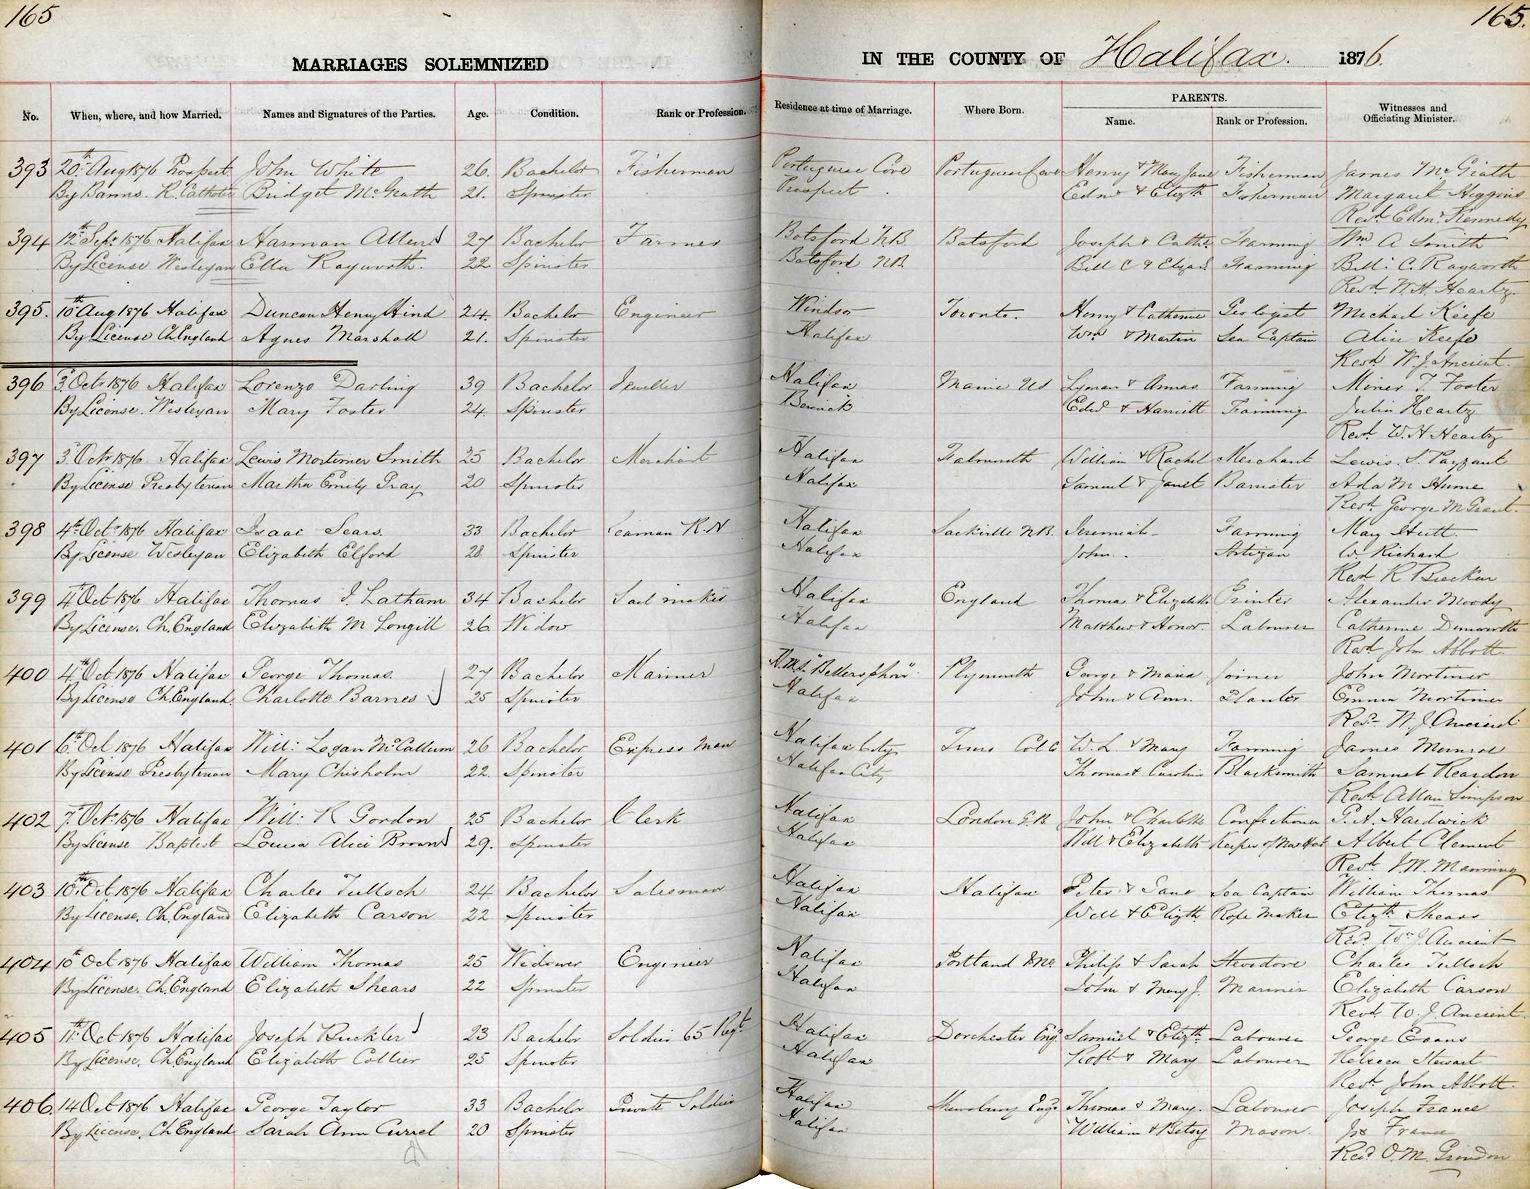 165
165.
MARRIAGES SOLEMNIZED
IN THE COUNTY OF Halifax. 1876.
No. When, where, and how Married. Names and Signatures of the Parties. Age. Condition. Rank or Profession. Residence at time of Marriage. Where Born. PARENTS. Name. Rank or Profession. Witnesses and Officiating Minister.
393 20th Aug 1876 Prospect John White 26. Bachelor Fisherman Portuguese Cove Portuguese Cove Henry & Mary Jane Fisherman James McGrath
By Banns R. Catholic Bridget McGrath 21. Spinster Prospect Edwd & Elizth Fisherman Margaret Higgins
Revd Edmd Kennedy
394 12th Sept 1876 Halifax Harman Allen 27 Bachelor Farmer Botsford N.B. Botsford Joseph & Cathe Farming Wm A Smith
By License Wesleyan Ella Rayworth. 22 Spinster Botsford NB Bill C & Elizab Farming Bill: C. Rayworth
Revd W. H. Heartz.
395. 10th Aug 1876 Halifax Duncan Henry Hind 24 Bachelor Engineer Windsor Toronto. Henry & Catherine Geologist Michael Keefe
By License Ch England Agnes Marshall 21. Spinster Halifax Wm & Martin Sea Captain Alice Keefe
Revd W. J. Ancient.
396 3d Octr 1876 Halifax Lorenzo Darling 39 Bachelor Jeweller Halifax Maine US Lyman & Annas Farming Miner T. Foster
By License. Wesleyan Mary Foster 24. Spinster Berwick Edwd & Harriett Farming Julia Heartz
Revd W. H Heartz
397 3d Octr 1876 Halifax Lewis Mortimer Smith 25 Bachelor Merchant Halifax Falmouth William & Rachel Merchant Lewis. S. Payzant
By License Presbyterian Martha Emily Gray 20 Spinster Halifax Samuel & Janet Barrister Ada M Hume
Revd George M Grant.
398 4th Octr 1876 Halifax Isaac Sears. 33 Bachelor Seaman R.N Halifax Sackville NB. Jeremiah Farming May Hutt.
By License Wesleyan Elizabeth Elford 28 Spinster Halifax John. Artizan W. Richard
Revd R Brecken
399 4th Oct 1876 Halifax Thomas J. Latham 34 Bachelor Sail maker Halifax England Thomas & Elizabeth Printer Alexander Moody
By License. Ch. England Elizabeth M Longill 26 Widow Halifax Matthew & Honor. Labourer Catherine
Revd John Abbott.
400 4th Oct 1876 Halifax George Thomas. 27 Bachelor Mariner H.M.S. "Bellerophon" Plymouth George & Maria Joiner John Mortimer
By License Ch. England Charlotte Barnes 25 Spinster Halifax John & Ann. Planter Emma Mortimer
Revd. W. J. Ancient
401 6th Oct 1876 Halifax Will: Logan McCallum 26 Bachelor Express Man Halifax City Truro Col Co W. L. & Mary Farming James Munroe
By License Presbyterian Mary Chisholm 22 Spinster Halifax City Thomas & Caroline Blacksmith Samuel Reardon
Revd Allan Simpson
402 7th Oct 1876 Halifax Will: R Gordon 25 Bachelor Clerk Halifax London G.B John & Charlotte Confectioner P. A. Hardwick
By License Baptist Louisa Alice Brown 29. Spinster Halifax Will & Elizabeth Keeper of Albert Clement
Revd J. W. Manning
403 10th Oct 1876 Halifax Charles Tulloch 24 Bachelor Salesman Halifax Halifax Peter & Jane Sea Captain William Thomas
By License. Ch. England Elizabeth Carson 22 Spinster Halifax Will & Elizth. Rope Maker Elizth Shears
Revd Wm J. Ancient
404 10th Oct 1876 Halifax William Thomas 25 Widower Engineer Halifax Portland Me Philip & Sarah Charles Tulloch
By License. Ch. England Elizabeth Shears 22 Spinster Halifax John & Mary J. Mariner Elizabeth Carson
Revd W J. Ancient.
405 11th Oct 1876 Halifax Joseph Buckler 23 Bachelor Soldier 65 Regt Halifax Dorchester Eng. Samuel & Elizth. Labourer George Evans
By License. Ch England Elizabeth Collier 25 Spinster Halifax Robt & Mary Labourer Rebecca Stewart
Revd John Abbott.
406. 14 Oct 1876 Halifax George Taylor 33 Bachelor Private Soldier Halifax Shewsbury Eng. Thomas & Mary. Labourer Joseph France
By License. Ch England Sarah Ann Currel 20 Spinster Halifax William & Betsy Mason. France
Revd O. M. Grindon